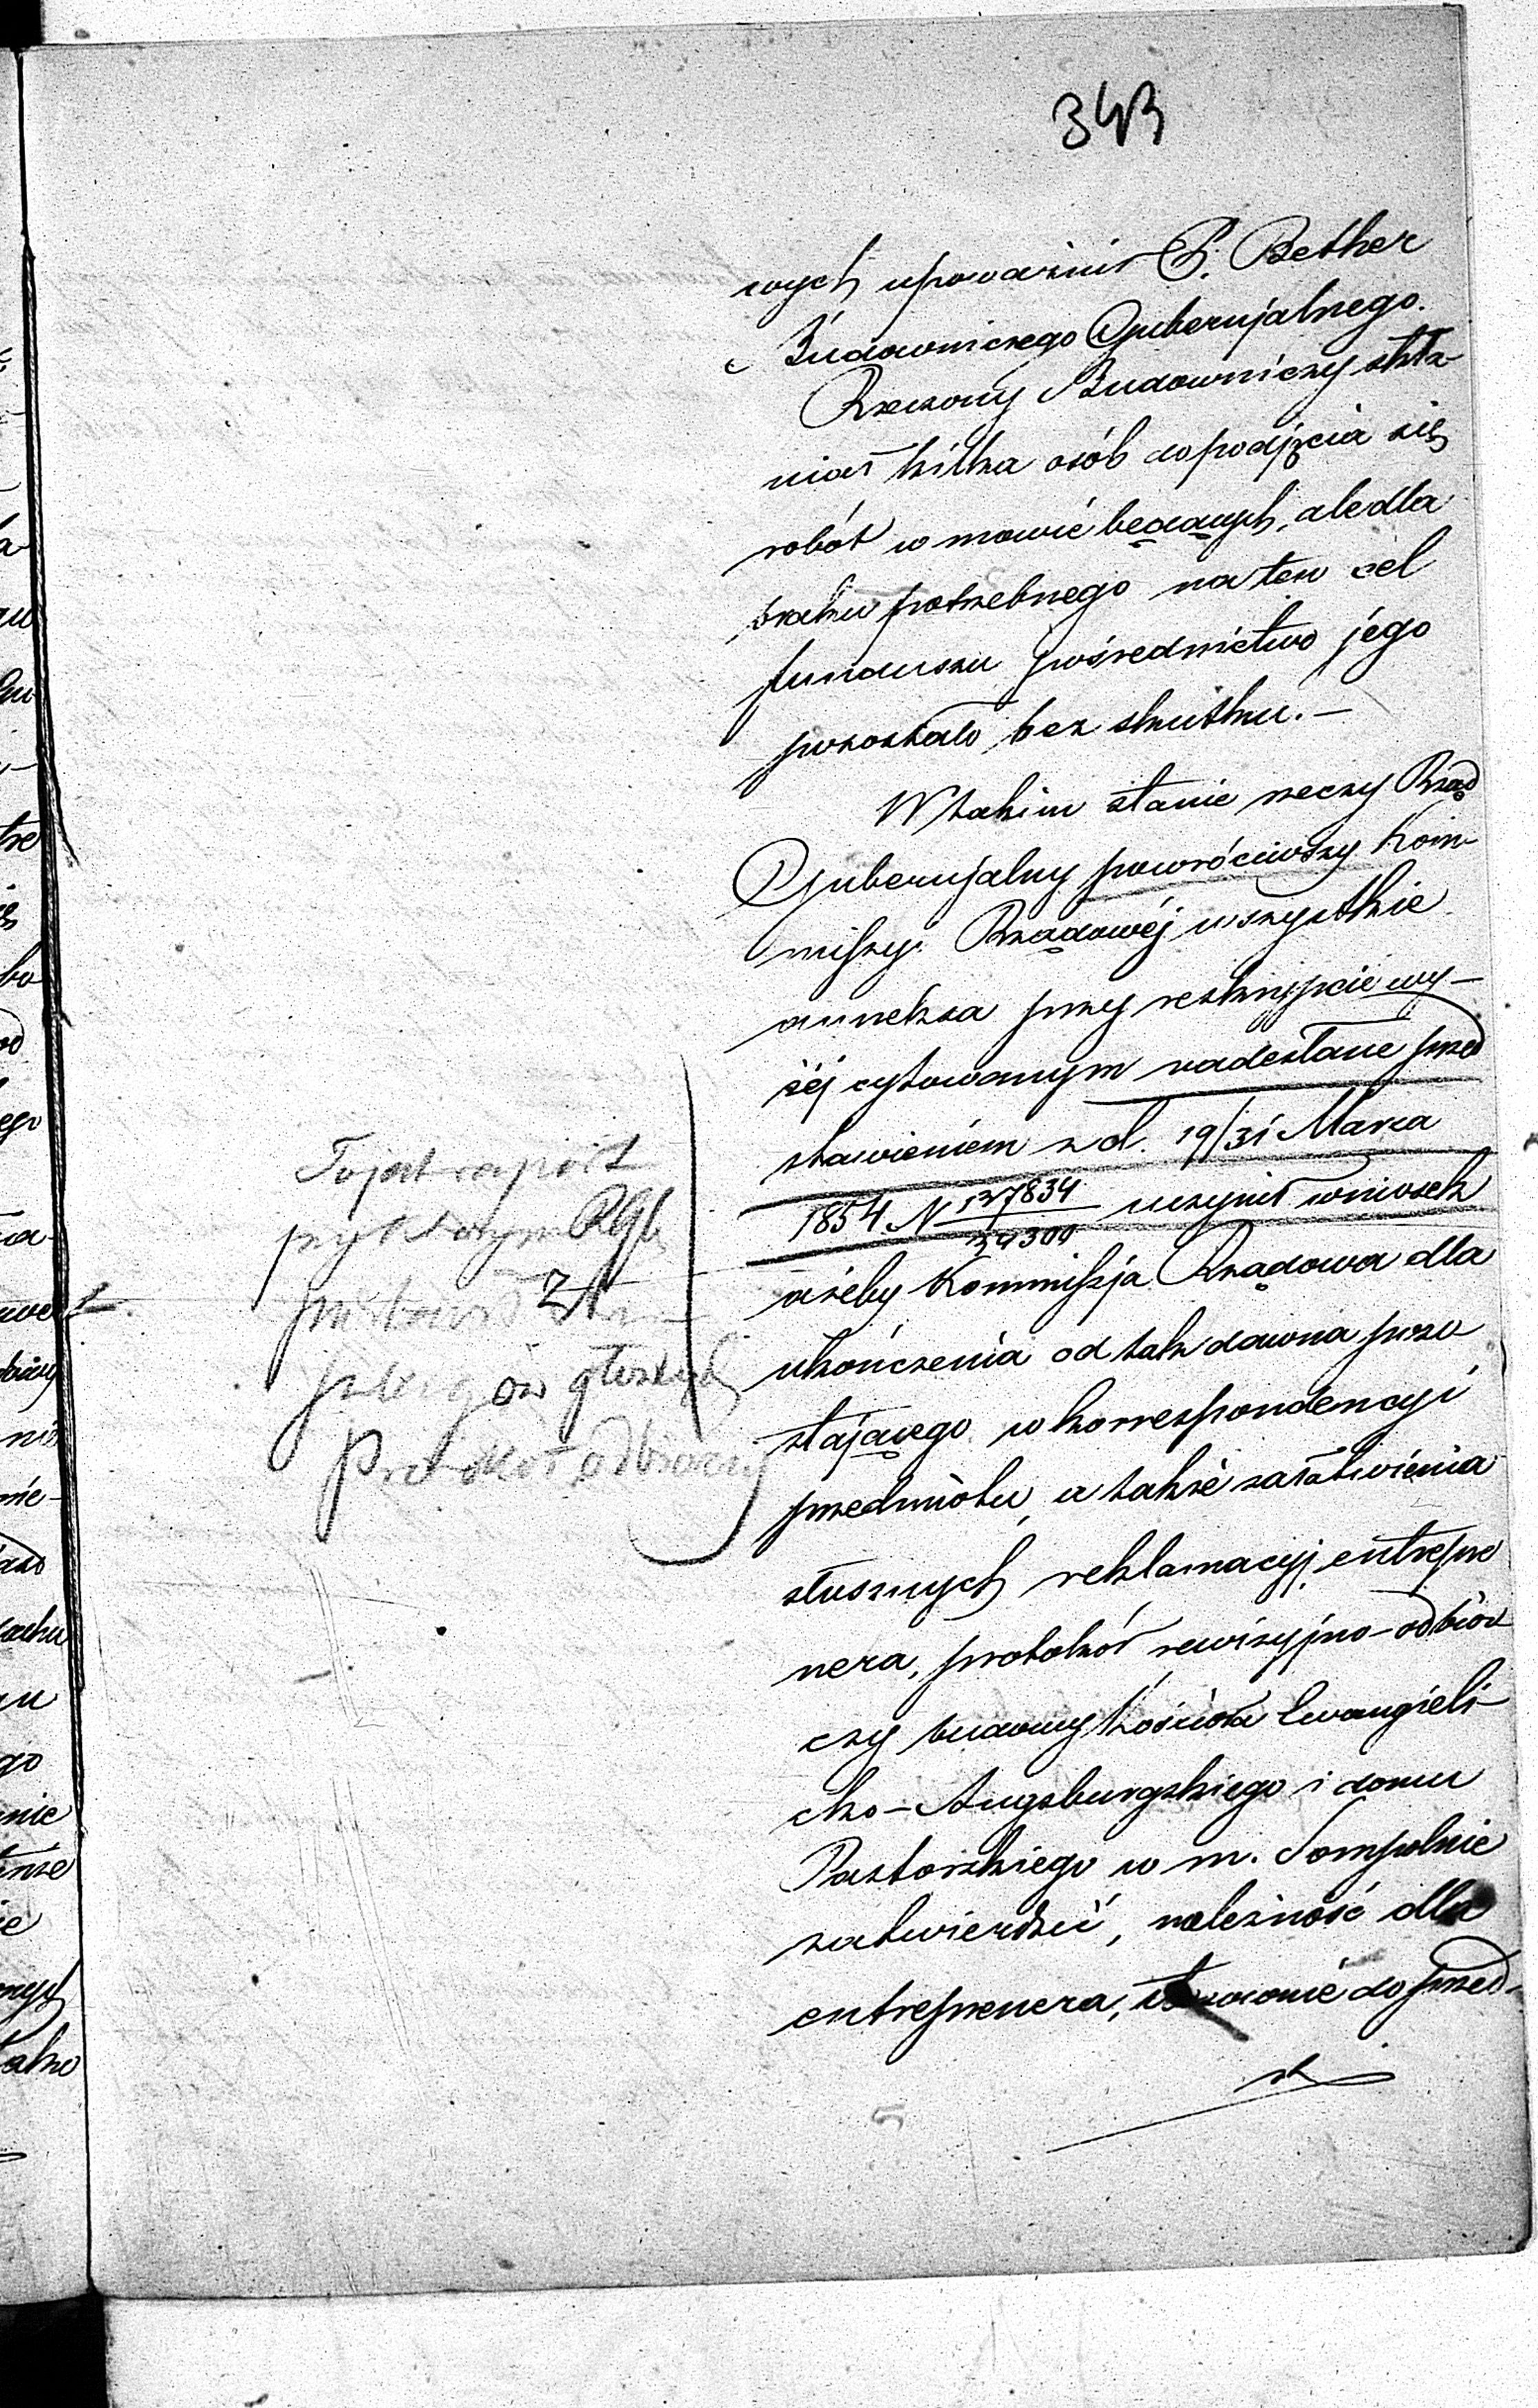 343
wych upoważnił P. Bether
Budowniczego Gubernjalnego.
Rzeczony Budowniczy skła-
niał kilka osób do podjęcia się
robót w mowie będących, ale dla
braku potrzebnego na ten cel
funduszu pośrednictwo jego
pozostało bez skutku. –
W takim stanie rzeczy Rząd
Gubernjalny powróciwszy Kom-
missyi Rządowéj wszystkie
anneksa przy reskrypcie wy-
żéj cytowanym nadesłane przed
stawieniem z d. 19/31 Marca
1854 N 137834/34300 uczynił wniosek
ażeby Kommissja Rządowa dla
ukończenia od tak dawna pozo
stającego w korrespondencyi
przedmiotu, a także załatwienia
słusznych reklamacyj entrepre
nera, protokół rewizyjno-odbior
czy budowy Kościoła Ewangieli-
cko-Augsburgskiego i domu
Pastorskiego w m. Sompolnie
zatwierdzić, należność dla
entreprenera, stosownie do przed-
To jest raport
przy którym RGb
protokół odbiorczy